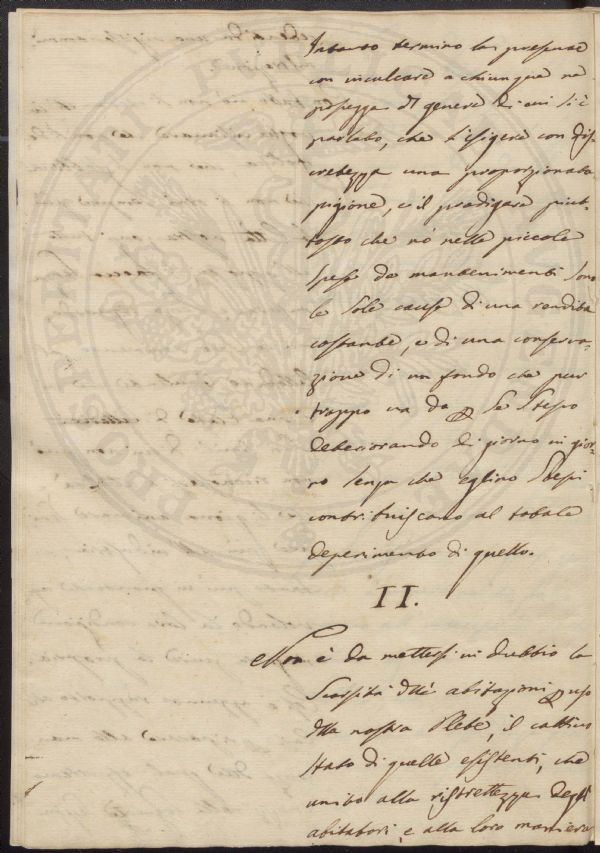 Intanto termino la presente
con inculcare a chiunque ne
possegga di genere di cui si è
parlato, che l'esigere con dis-
cretezza una proporzionata
pigione, e il prodigare piut-
tosto che nò nelle piccole
spese de mantenimenti sono
le sole cause di una rendita
costante, e di una conserva-
zione di un fondo che pur
troppo va da per se stesso
deteriorando di giorno in gior-
no senza che eglino stessi
contribuiscano al totale
deperimento di quello.
II.
Non è da mettersi in dubbio la
Scarsità dlle abitazioni per uso
dlla nostra Plebe, il cattivo
stato di quelle esistenti, che
unito alla ristrettezza degli
abitatori, e alla loro maniera